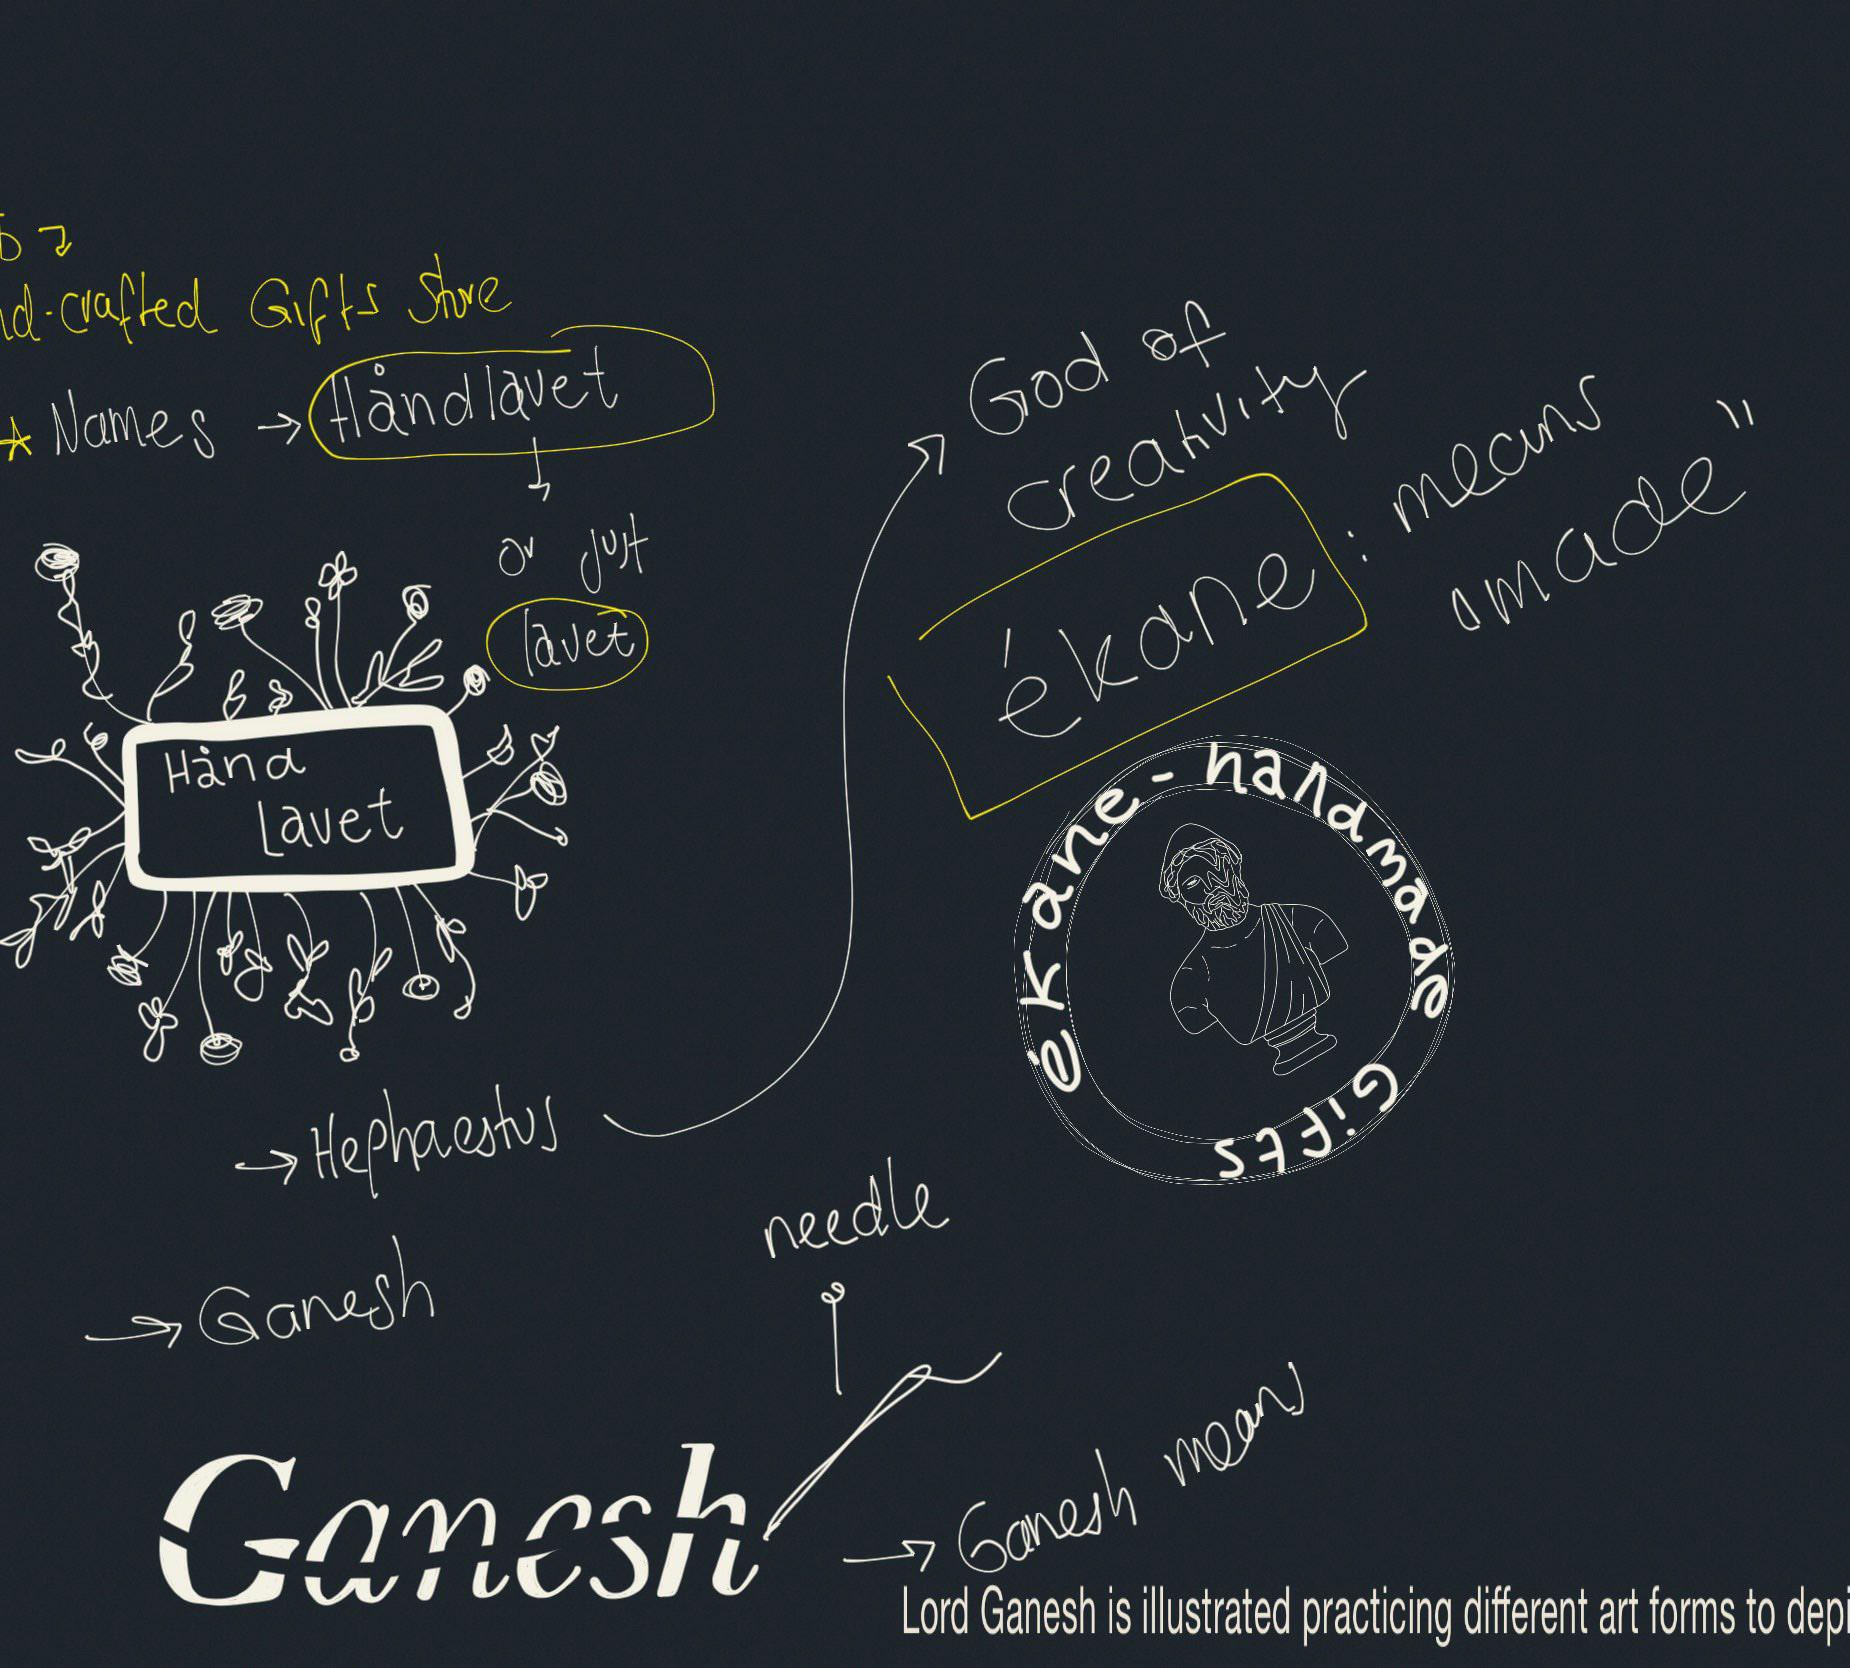 nd-crafted Gifts Store
Names → Håndlavet
or just
lavet
Hånd
Lavet
→ Hephaestus
→ Ganesh
God of
creativity
ékane : means
made"
ékane - handmade Gifts
needle
Ganesh
→ Ganesh means
Lord Ganesh is illustrated practicing different art forms to depi